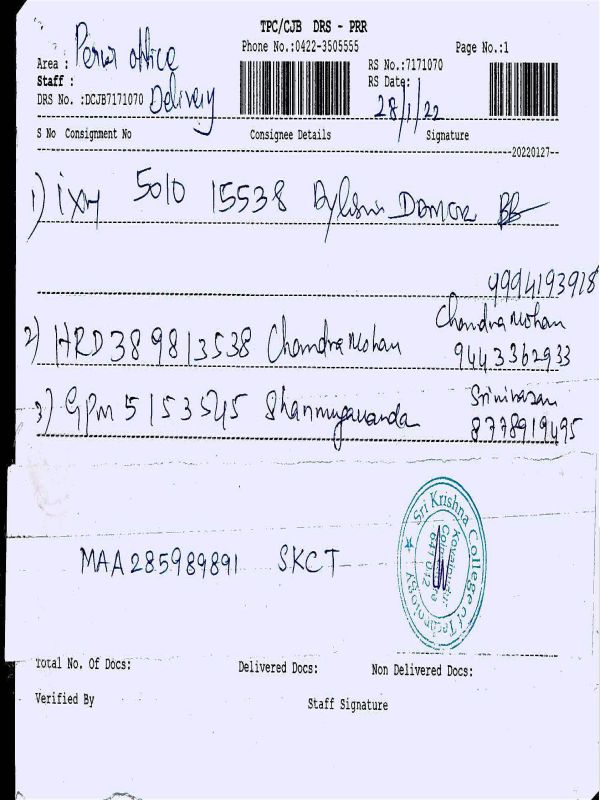 TPC/CJB DRS - PRR
Phone No.:0422-3505555 Page No.:1
Area : office RS No.:7171070
Staff : RS Date:
DRS No. :DCJB7171070 Delivery 28/1/22
S No Consignment No Consignee Details Signature
20220127
1) 5010 15538
9994193918
Chandra Mohan
2) HRD 389813538 Chandra Mohan 9443362933
Srinivasan
3) GPM 5153545 Shanmugananda 8778919495
MAA 285989891 SKCT
Sri Krishna College of Technology
Kovaipudur
Coimbatore
641 042
Total No. Of Docs: Delivered Docs: Non Delivered Docs:
Verified By Staff Signature